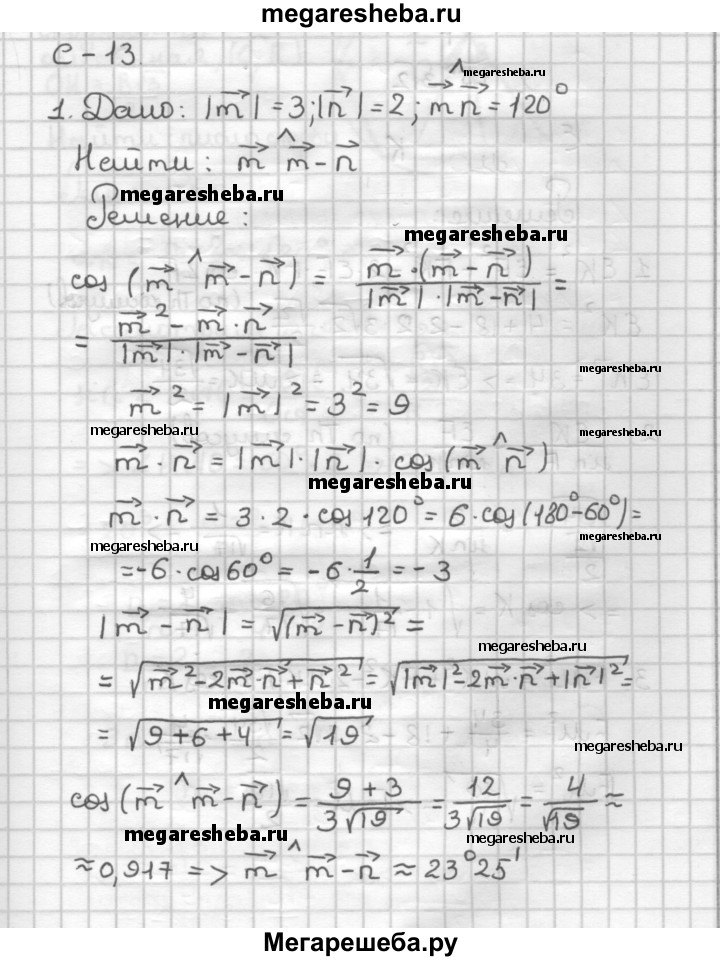 megaresheba.ru
С-13.
megaresheba.ru
1. Дано: |m⃗| = 3; |n⃗| = 2; m⃗ ^ n⃗ = 120°
Найти: m⃗ ^ m⃗ - n⃗
megaresheba.ru
Решение:
megaresheba.ru
cos (m⃗ ^ m⃗ - n⃗) = m⃗ · (m⃗ - n⃗) / |m⃗| · |m⃗ - n⃗| =
= m⃗² - m⃗ · n⃗ / |m⃗| · |m⃗ - n⃗|
megaresheba.ru
m⃗² = |m⃗|² = 3² = 9
megaresheba.ru
megaresheba.ru
m⃗ · n⃗ = |m⃗| · |n⃗| · cos (m⃗ ^ n⃗)
megaresheba.ru
m⃗ · n⃗ = 3 · 2 · cos 120° = 6 · cos (180° - 60°) =
megaresheba.ru
megaresheba.ru
= -6 · cos 60° = -6 · 1/2 = -3
|m⃗ - n⃗| = √(m⃗ - n⃗)² =
megaresheba.ru
= √m⃗² - 2m⃗ · n⃗ + n⃗² = √|m⃗|² - 2m⃗ · n⃗ + |n⃗|² =
megaresheba.ru
= √9 + 6 + 4 = √19
megaresheba.ru
cos (m⃗ ^ m⃗ - n⃗) = 9 + 3 / 3√19 = 12 / 3√19 = 4 / √19 ≈
megaresheba.ru
megaresheba.ru
≈ 0,917 => m⃗ ^ m⃗ - n⃗ ≈ 23°25'
Мегарешеба.ру